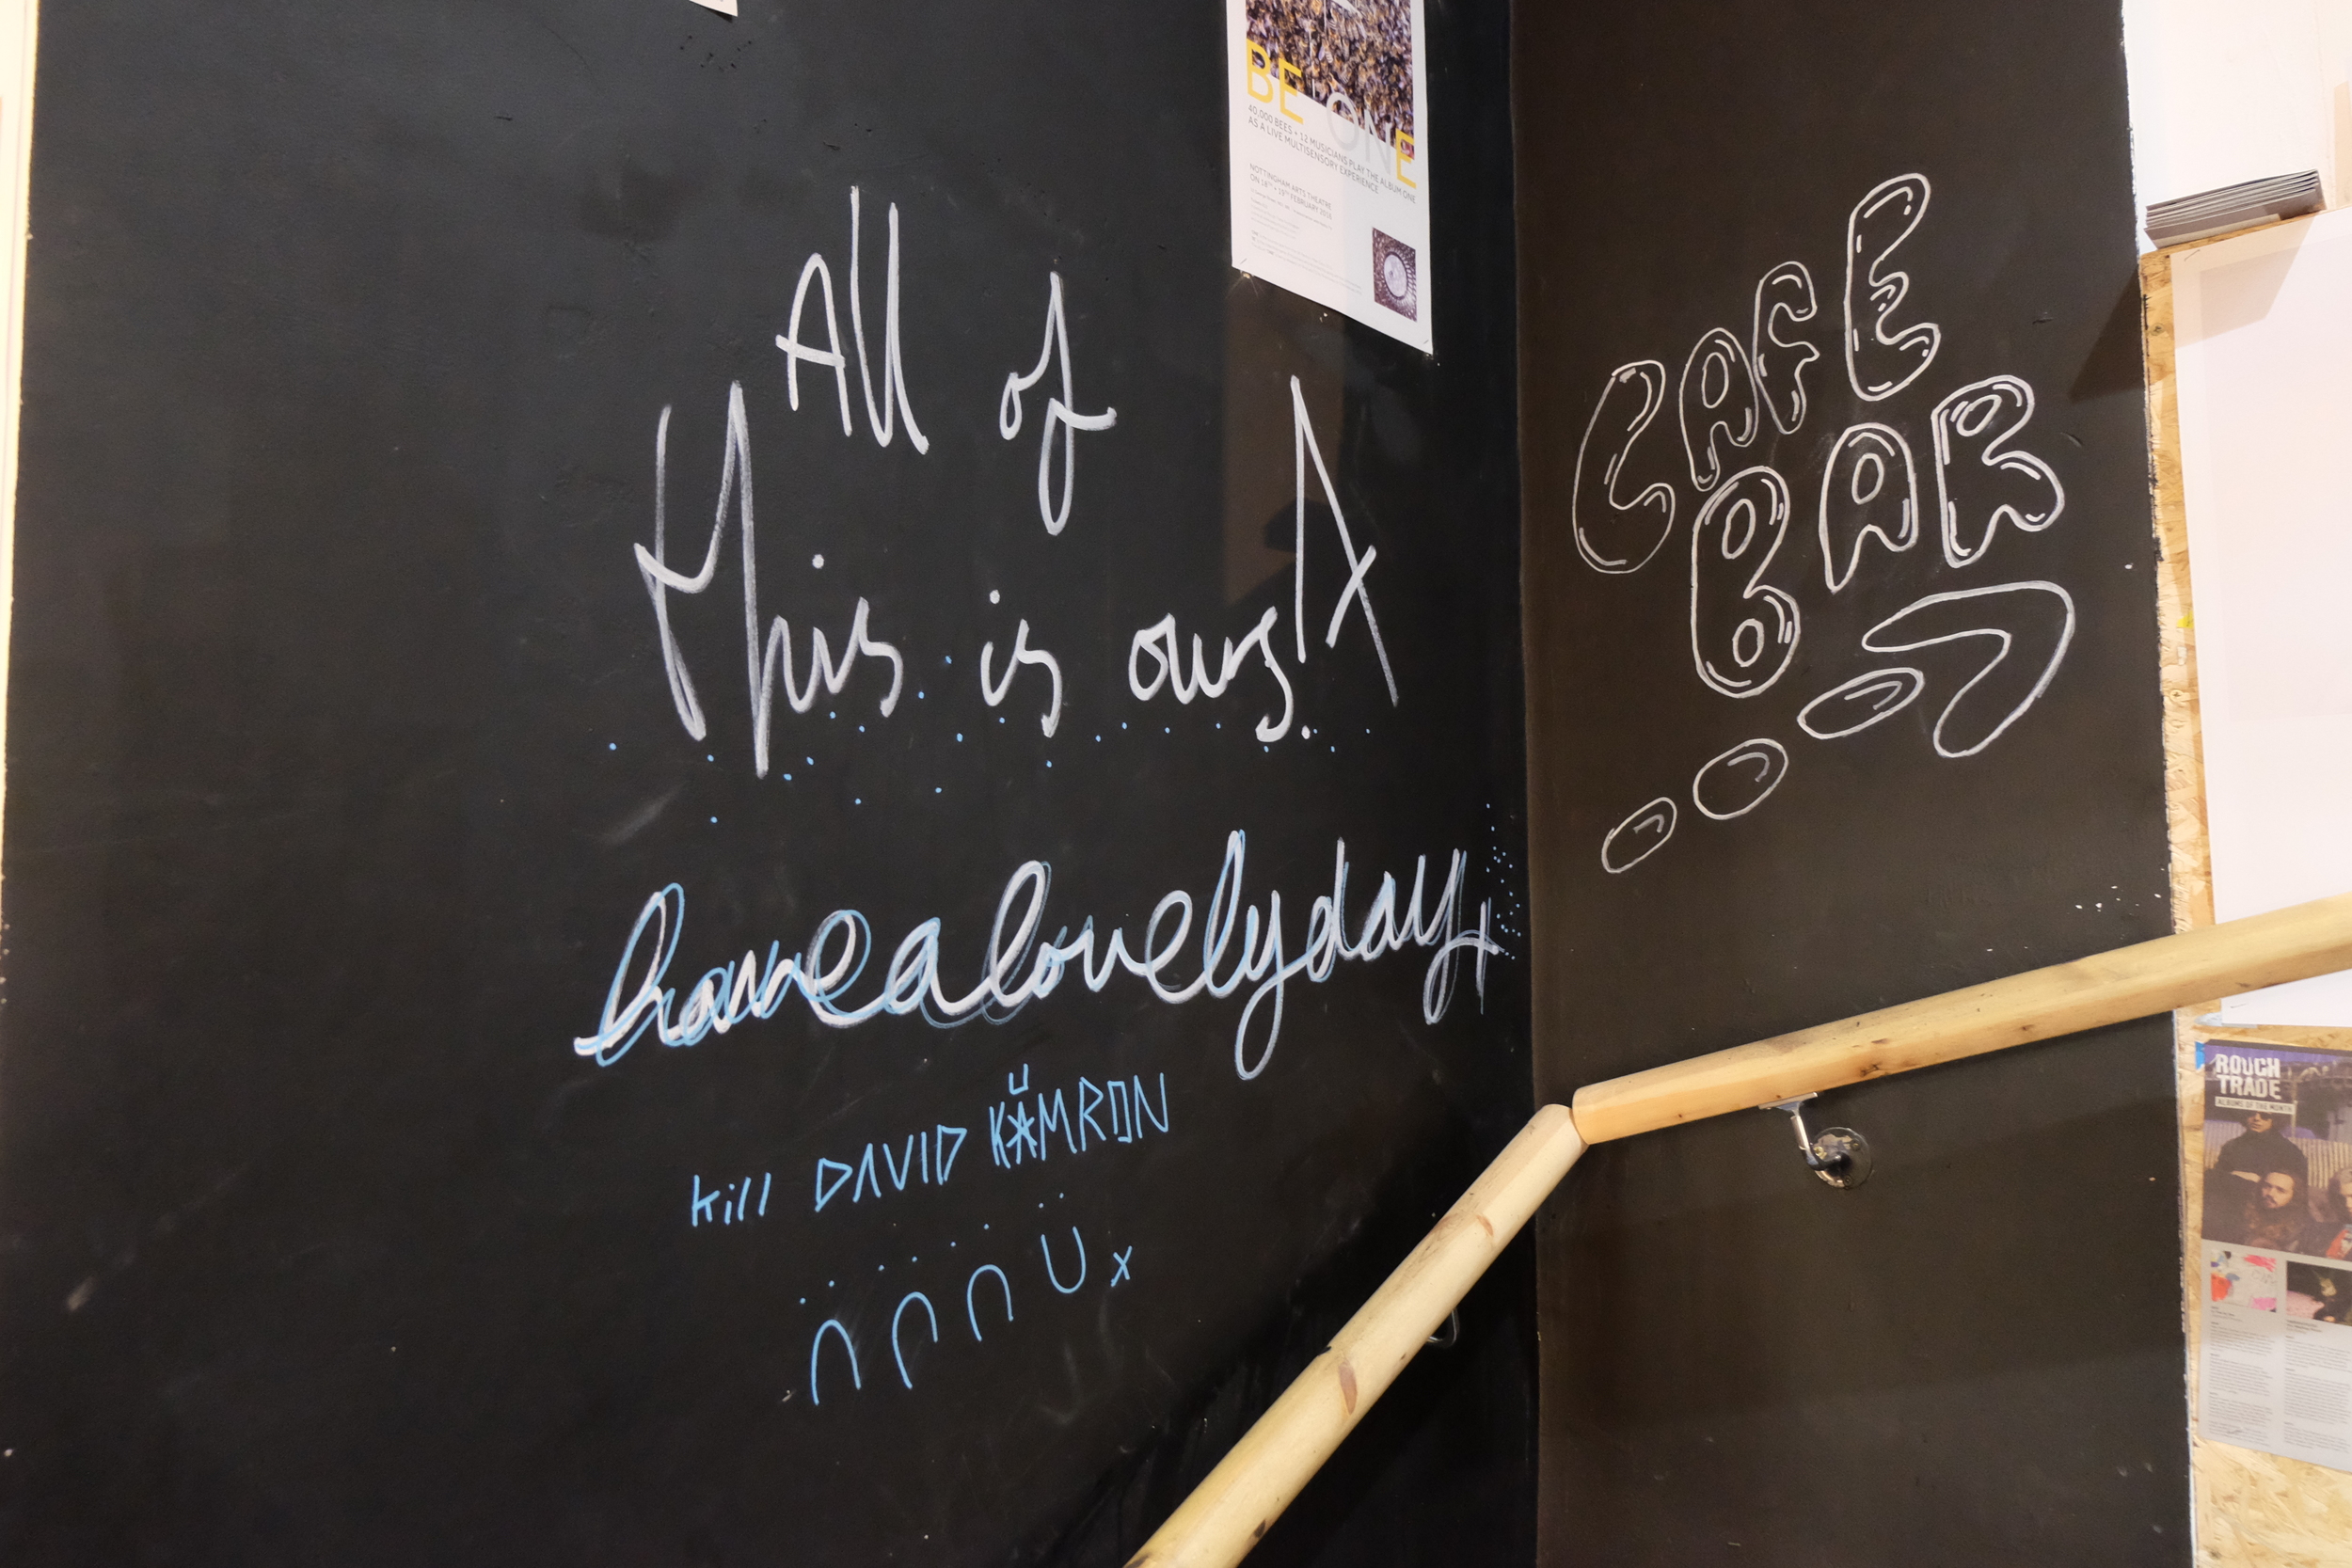 BE ONE
40,000 BEES + 12 MUSICIANS PLAY THE ALBUM ONE
AS A LIVE MULTISENSORY EXPERIENCE
NOTTINGHAM ARTS THEATRE
ON 18TH + 19TH FEBRUARY 2016
All of
This is ours!
havealovelyday
kill DAVID KAMRON
x
CAFE
BAR
ROUGH
TRADE
ALBUMS OF THE MONTH